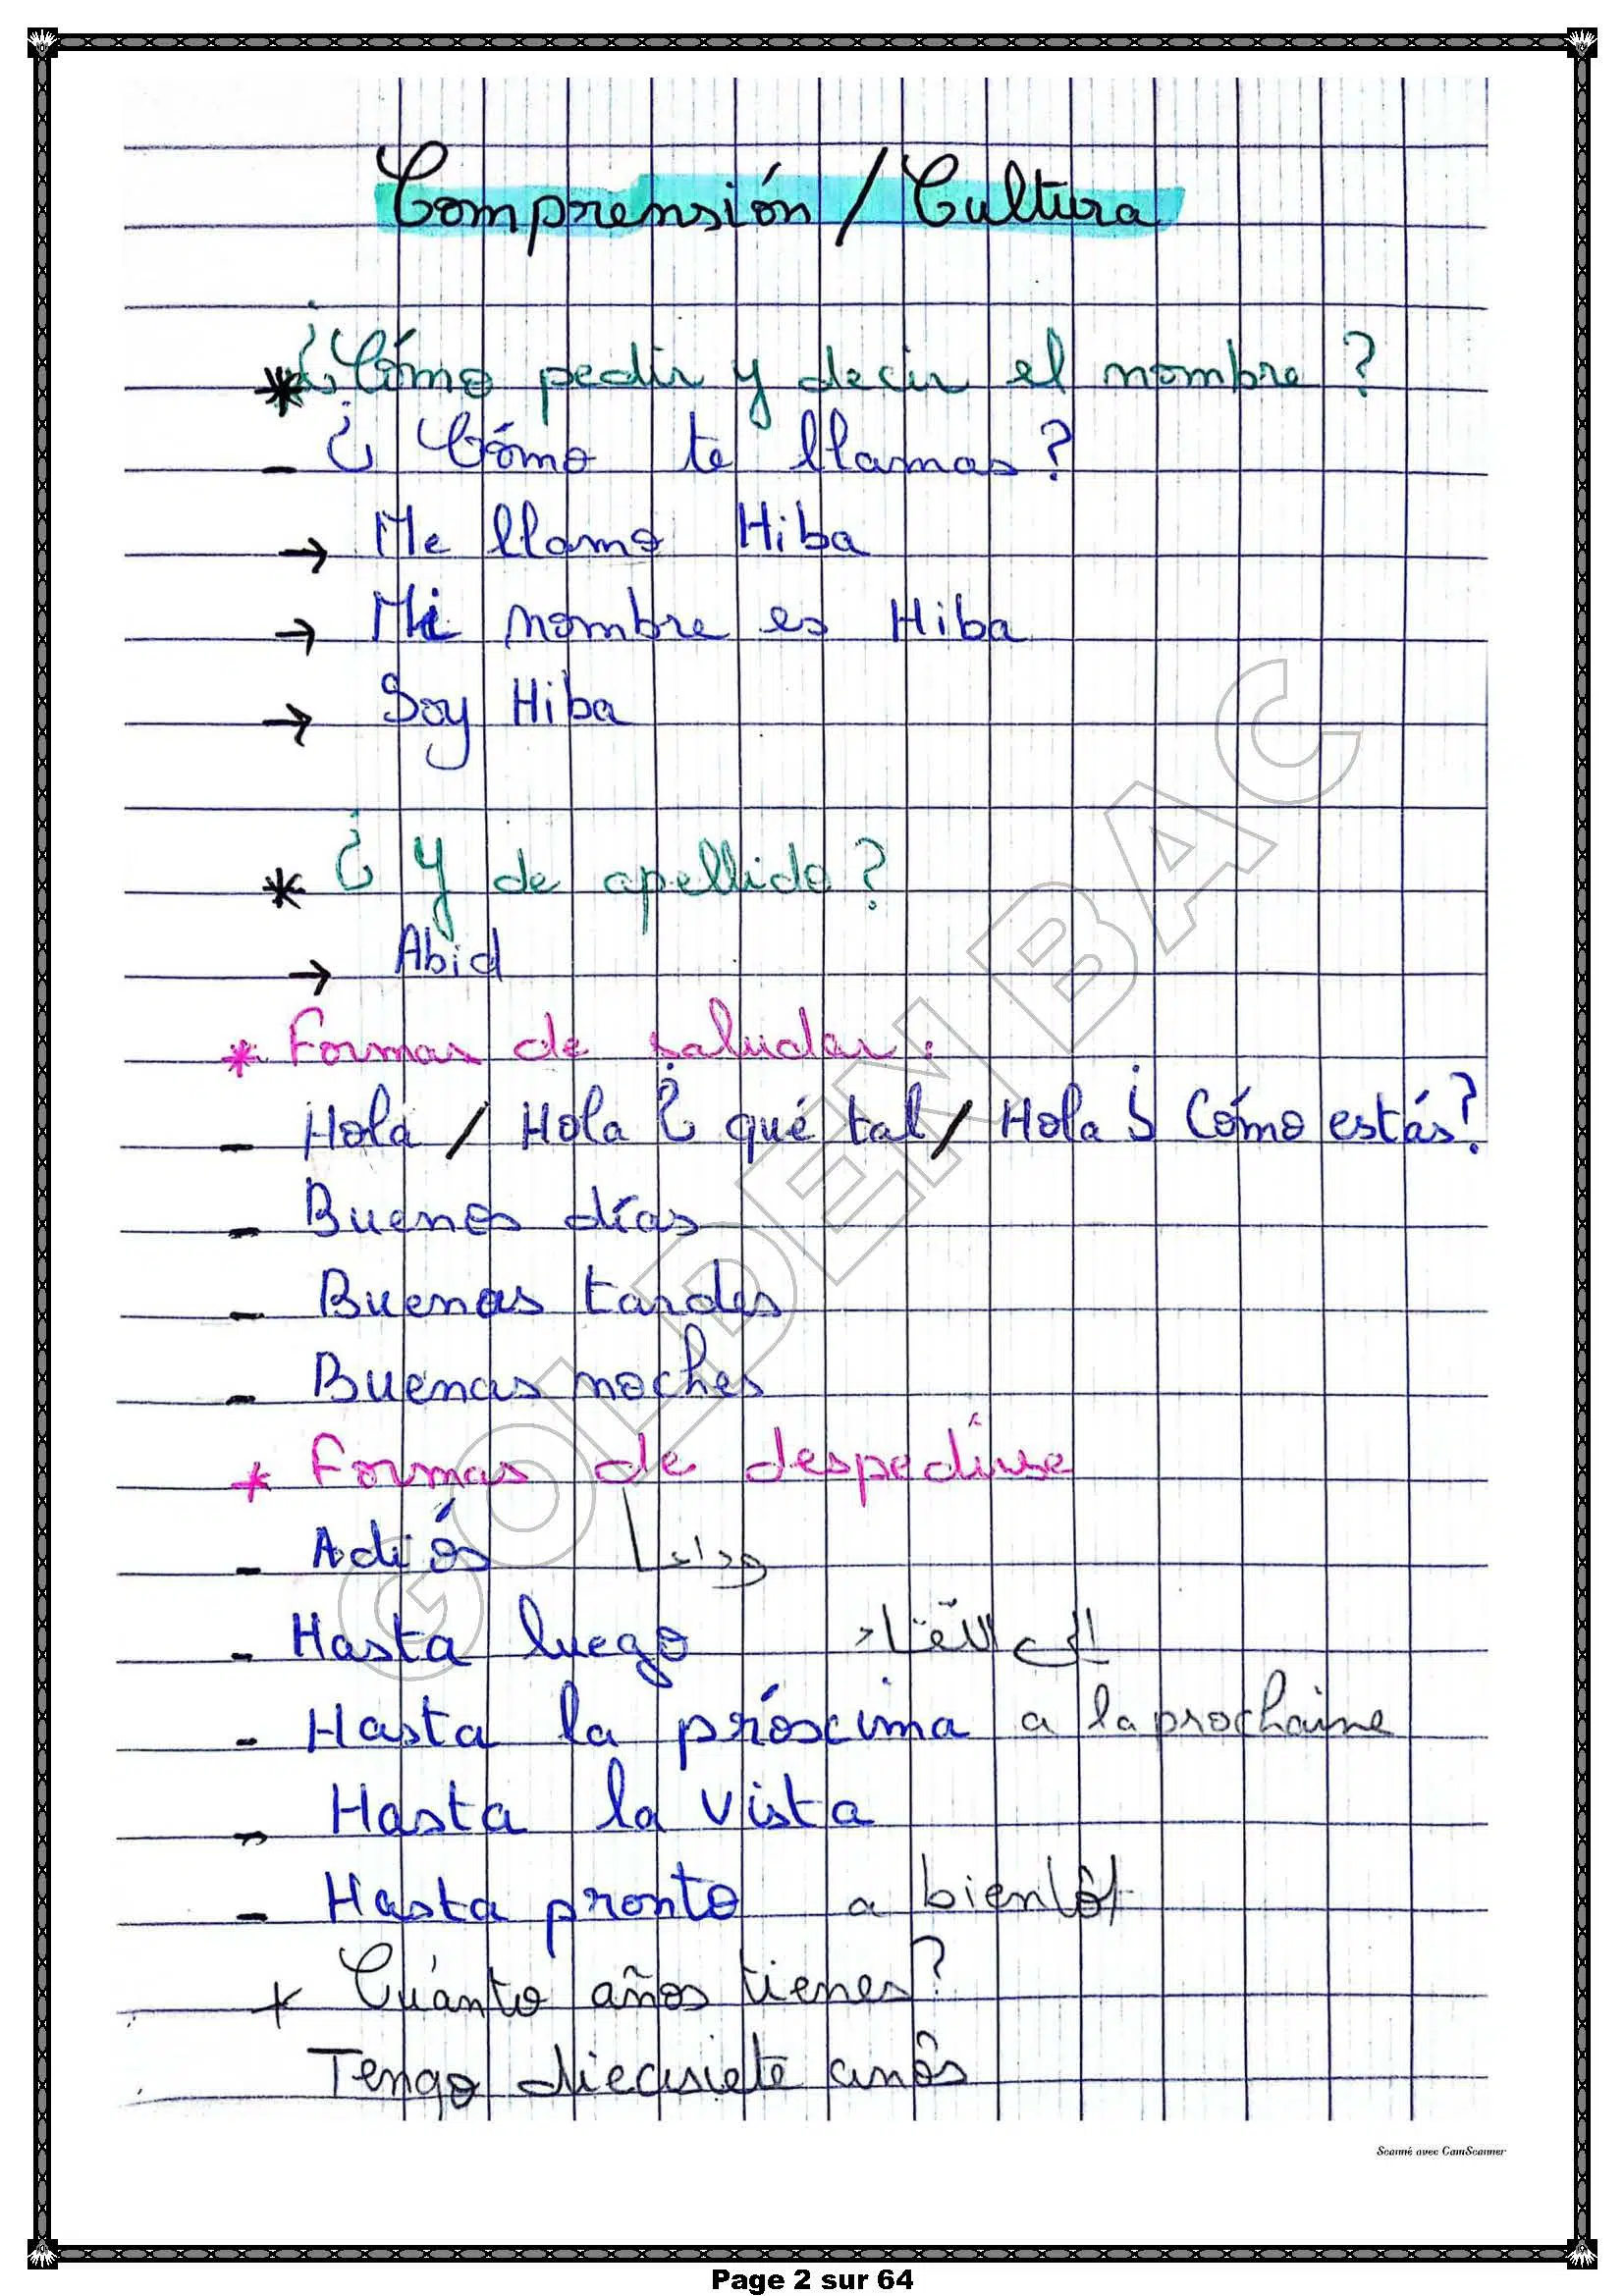 Comprensión / Cultura
* ¿Cómo pedir y decir el nombre?
- ¿Cómo te llamas?
→ Me llamo Hiba
→ Mi nombre es Hiba
→ Soy Hiba
* ¿Y de apellido?
→ Abid
* Formas de saludar:
- Hola / Hola ¿ qué tal / Hola ¿ Cómo estás?
- Buenos días
- Buenas tardes
- Buenas noches
* Formas de despedirse
- Adiós وداعا
- Hasta luego إلى اللقاء
- Hasta la próxima a la prochaine
- Hasta la vista
- Hasta pronto a bientôt
* Cuánto años tienes?
Tengo diecisiete anôs
GOLDEN BAC
Scanné avec CamScanner
Page 2 sur 64